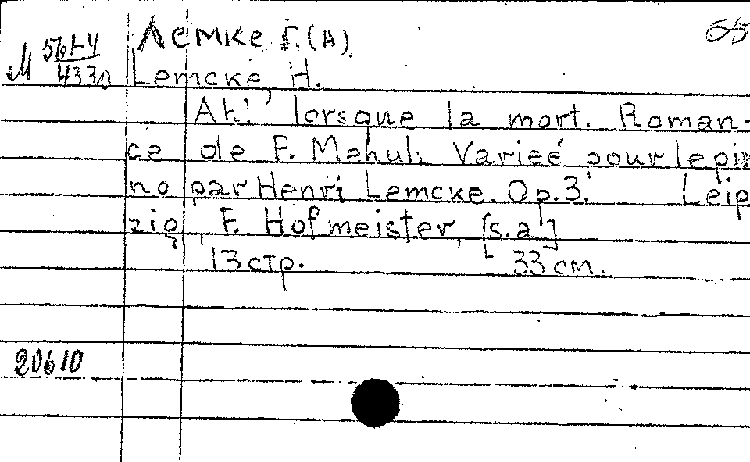 Лемке Г.(А)
65
М 561-4
4330
Lemcke, H.
Ah! lorsque la mort. Roman-
ce de F. Mehul. Varieé pour le pia
no par Henri Lemcke. Op.3. Leip
zig, F. Hofmeister, [s.a.]
13 стр. 33 см.
20610